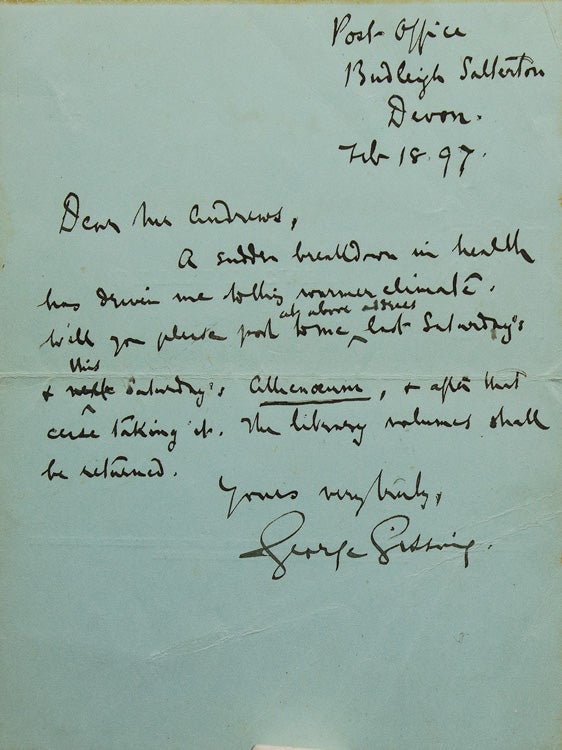 Post Office
Budleigh Salterton
Devon.
Feb 18. 97.
Dear Mr Andrews,
A sudden breakdown in health
has driven me to this warmer climate.
at above address
Will you please post to me ‸ last Saturday's
this
& next Saturday's Athenæum, & after that
cease taking it. The library volumes shall
be returned.
Yours very truly,
George Gissing.